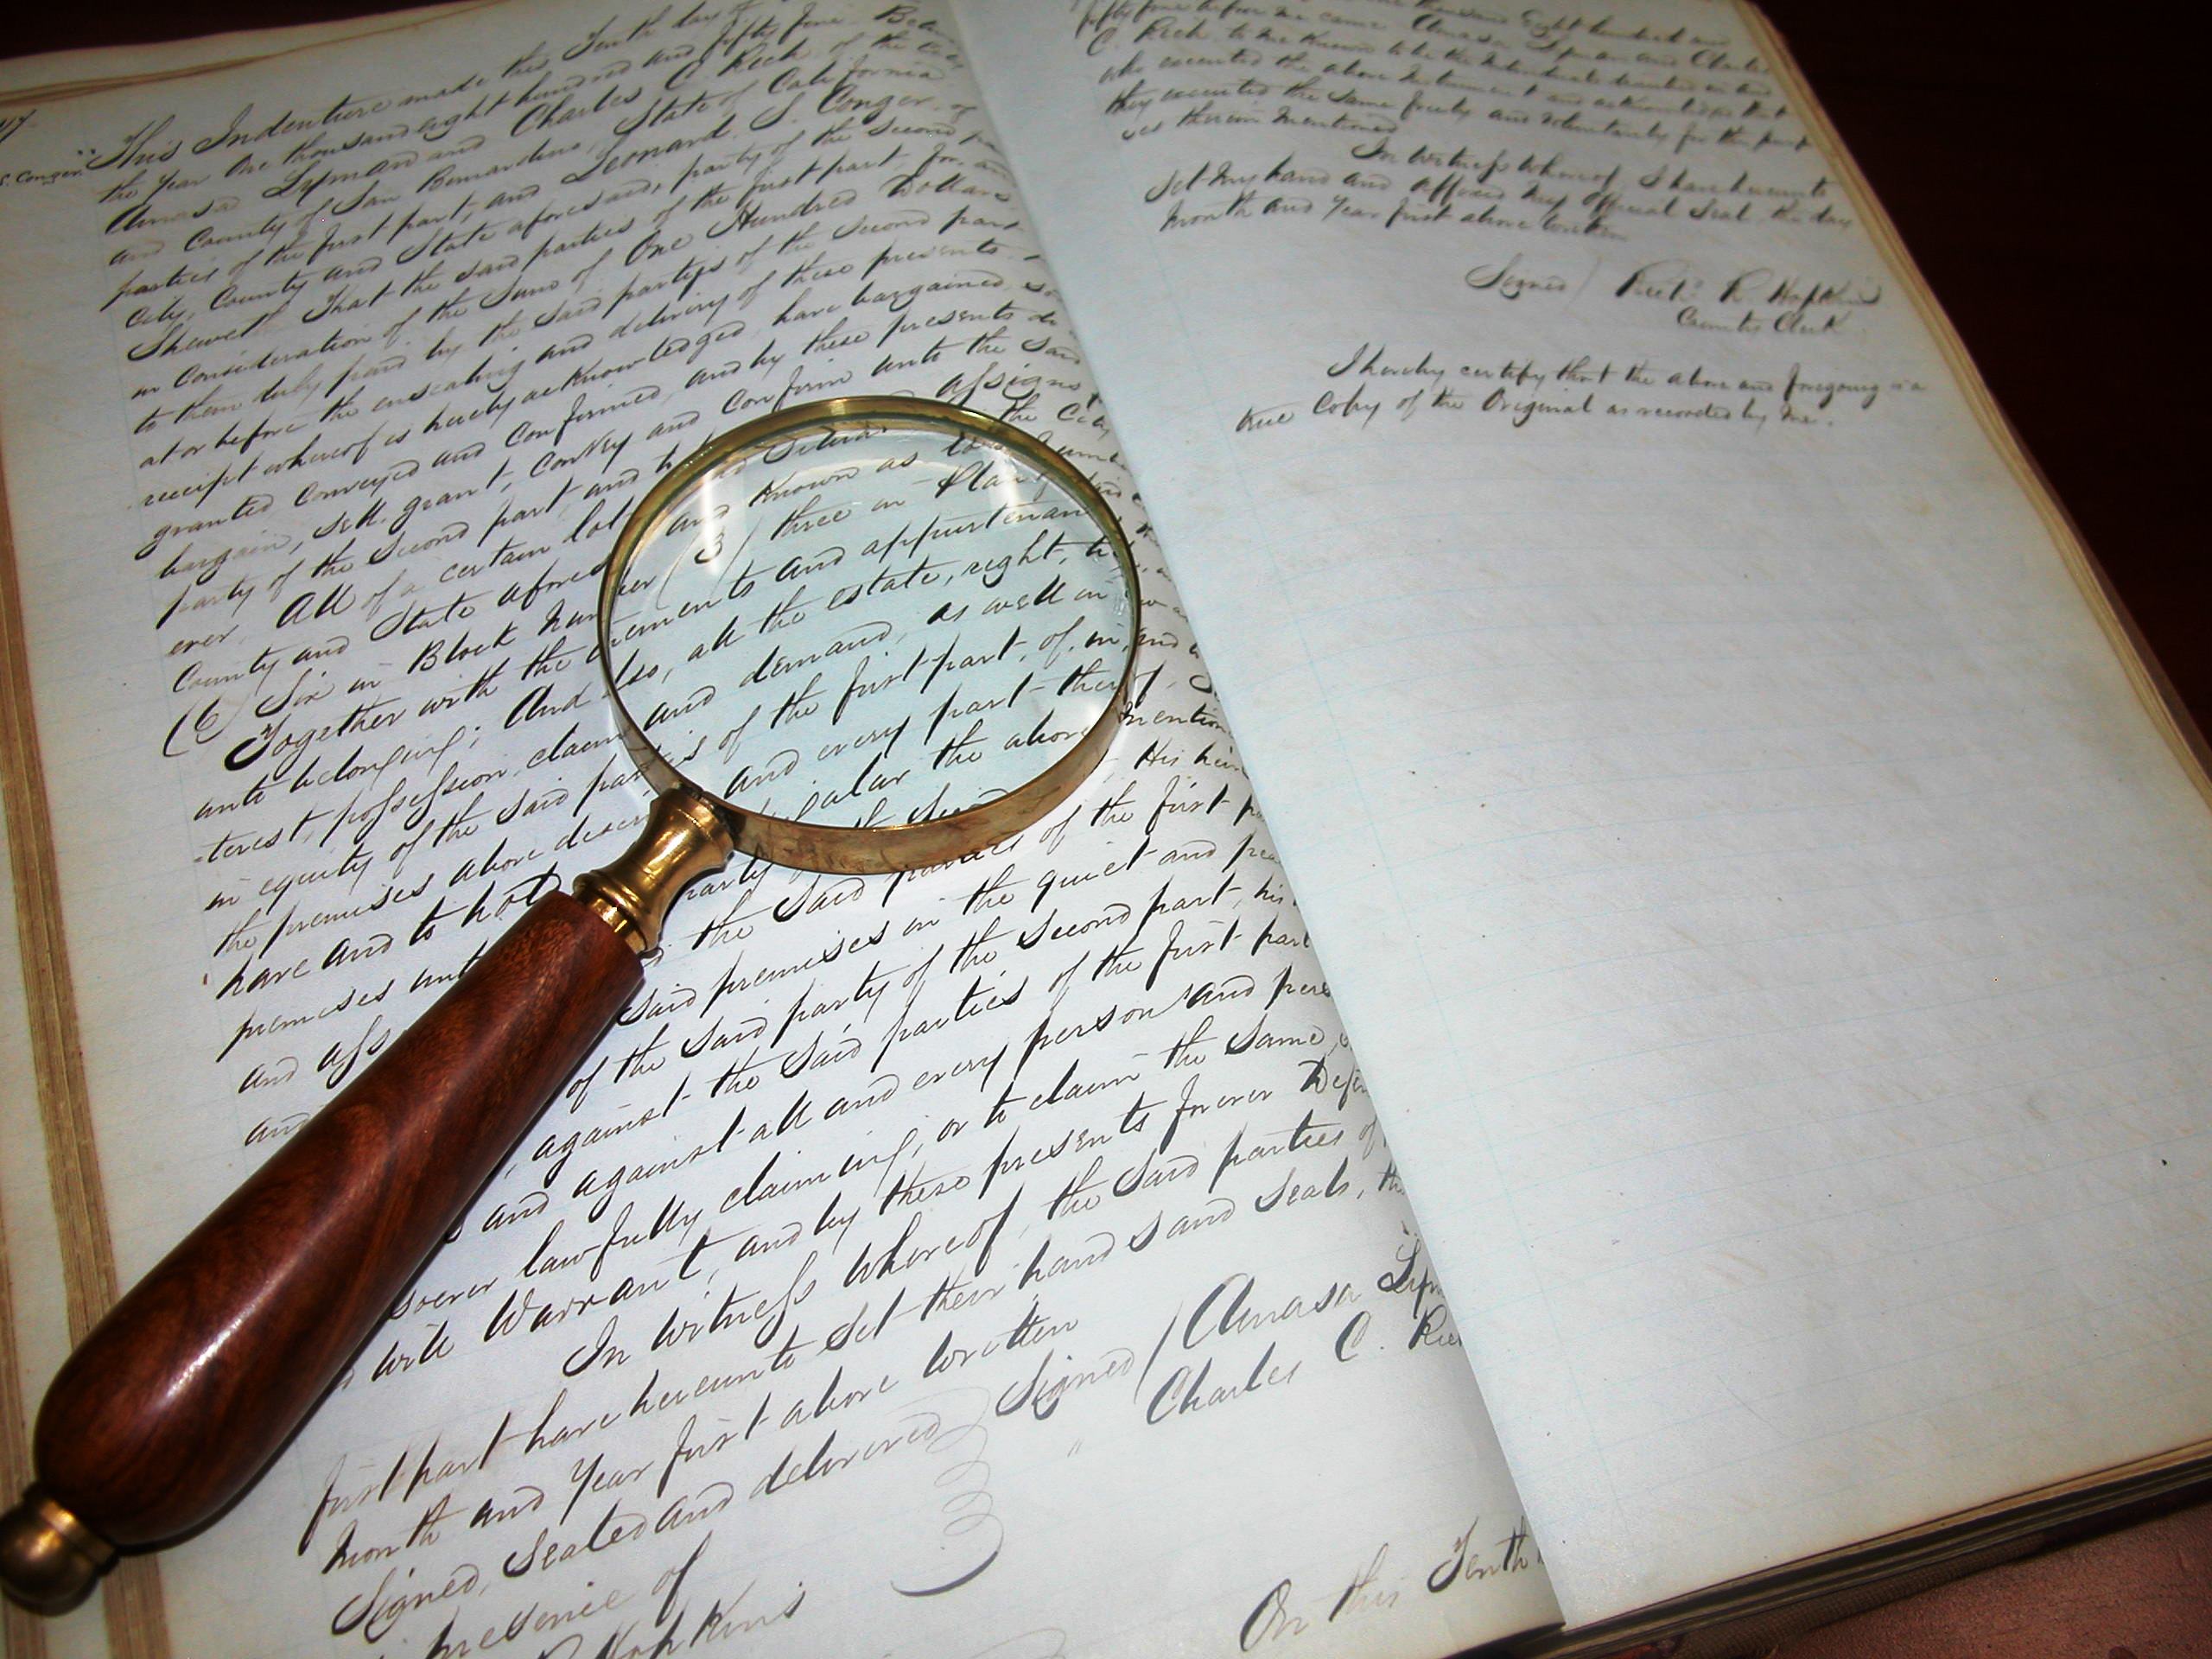 47
S. Conger
This Indenture made this Tenth day of
the Year One thousand eight hundred and fifty five Bet
Amasa Lyman and Charles C. Rich of the City
and County of San Bernardino, State of California
parties of the first part, and Leonard S. Conger of
City, County and State aforesaid, party of the second pa
Sheweth That the said parties of the first part for and
in consideration of the Sum of One Hundred Dollars
to them duly paid by the said parties of the second part
at or before the ensealing and delivery of these presents
receipt whereof is hereby acknowledged, have bargained, so
granted conveyed and confirmed, and by these presents do
bargain, sell, grant, convey and confirm unto the said
party of the second part, and h assigns
ever. All of a certain lot and Situa the City
County and State afores and known as Lot numbe
(6) Six in Block number (3) three in Plan
Together with the ements and appurtenan
unto belonging; And also, all the estate, right, t
terest, possession, claim and demand, as well in
in equity of the said parties of the first part, of, in, and
the premises above descr and every part thereof,
have and to hold gular the above mention
premises unto party the said His heir
and ass the said parties of the first p
and said premises in the quiet and pea
of the said party of the second part, his
against the said parties of the first part
and against all and every person and pers
soever lawfully claiming, or to claim the same,
will Warrant, and by these presents forever Defen
In witness whereof, the said parties of
first part have hereunto set their hands and seals, th
month and Year first above written
Signed, Sealed and delivered Signed Amasa Lym
presence of Charles C. Ric
Hopkins
On this Tenth
thousand Eight hundred and
fifty five before me came Amasa Lyman and Charles
C. Rich to me known to be the individuals described in and
who executed the above instrument and acknowledges that
they executed the same freely and voluntarily for the purp
ses therein mentioned
In witness whereof, I have hereunto
set my hand and affixed my official Seal the day
month and Year first above written
Signed R. Hopkins
County Clerk
I hereby certify that the above and foregoing is a
true Copy of the Original as recorded by me.